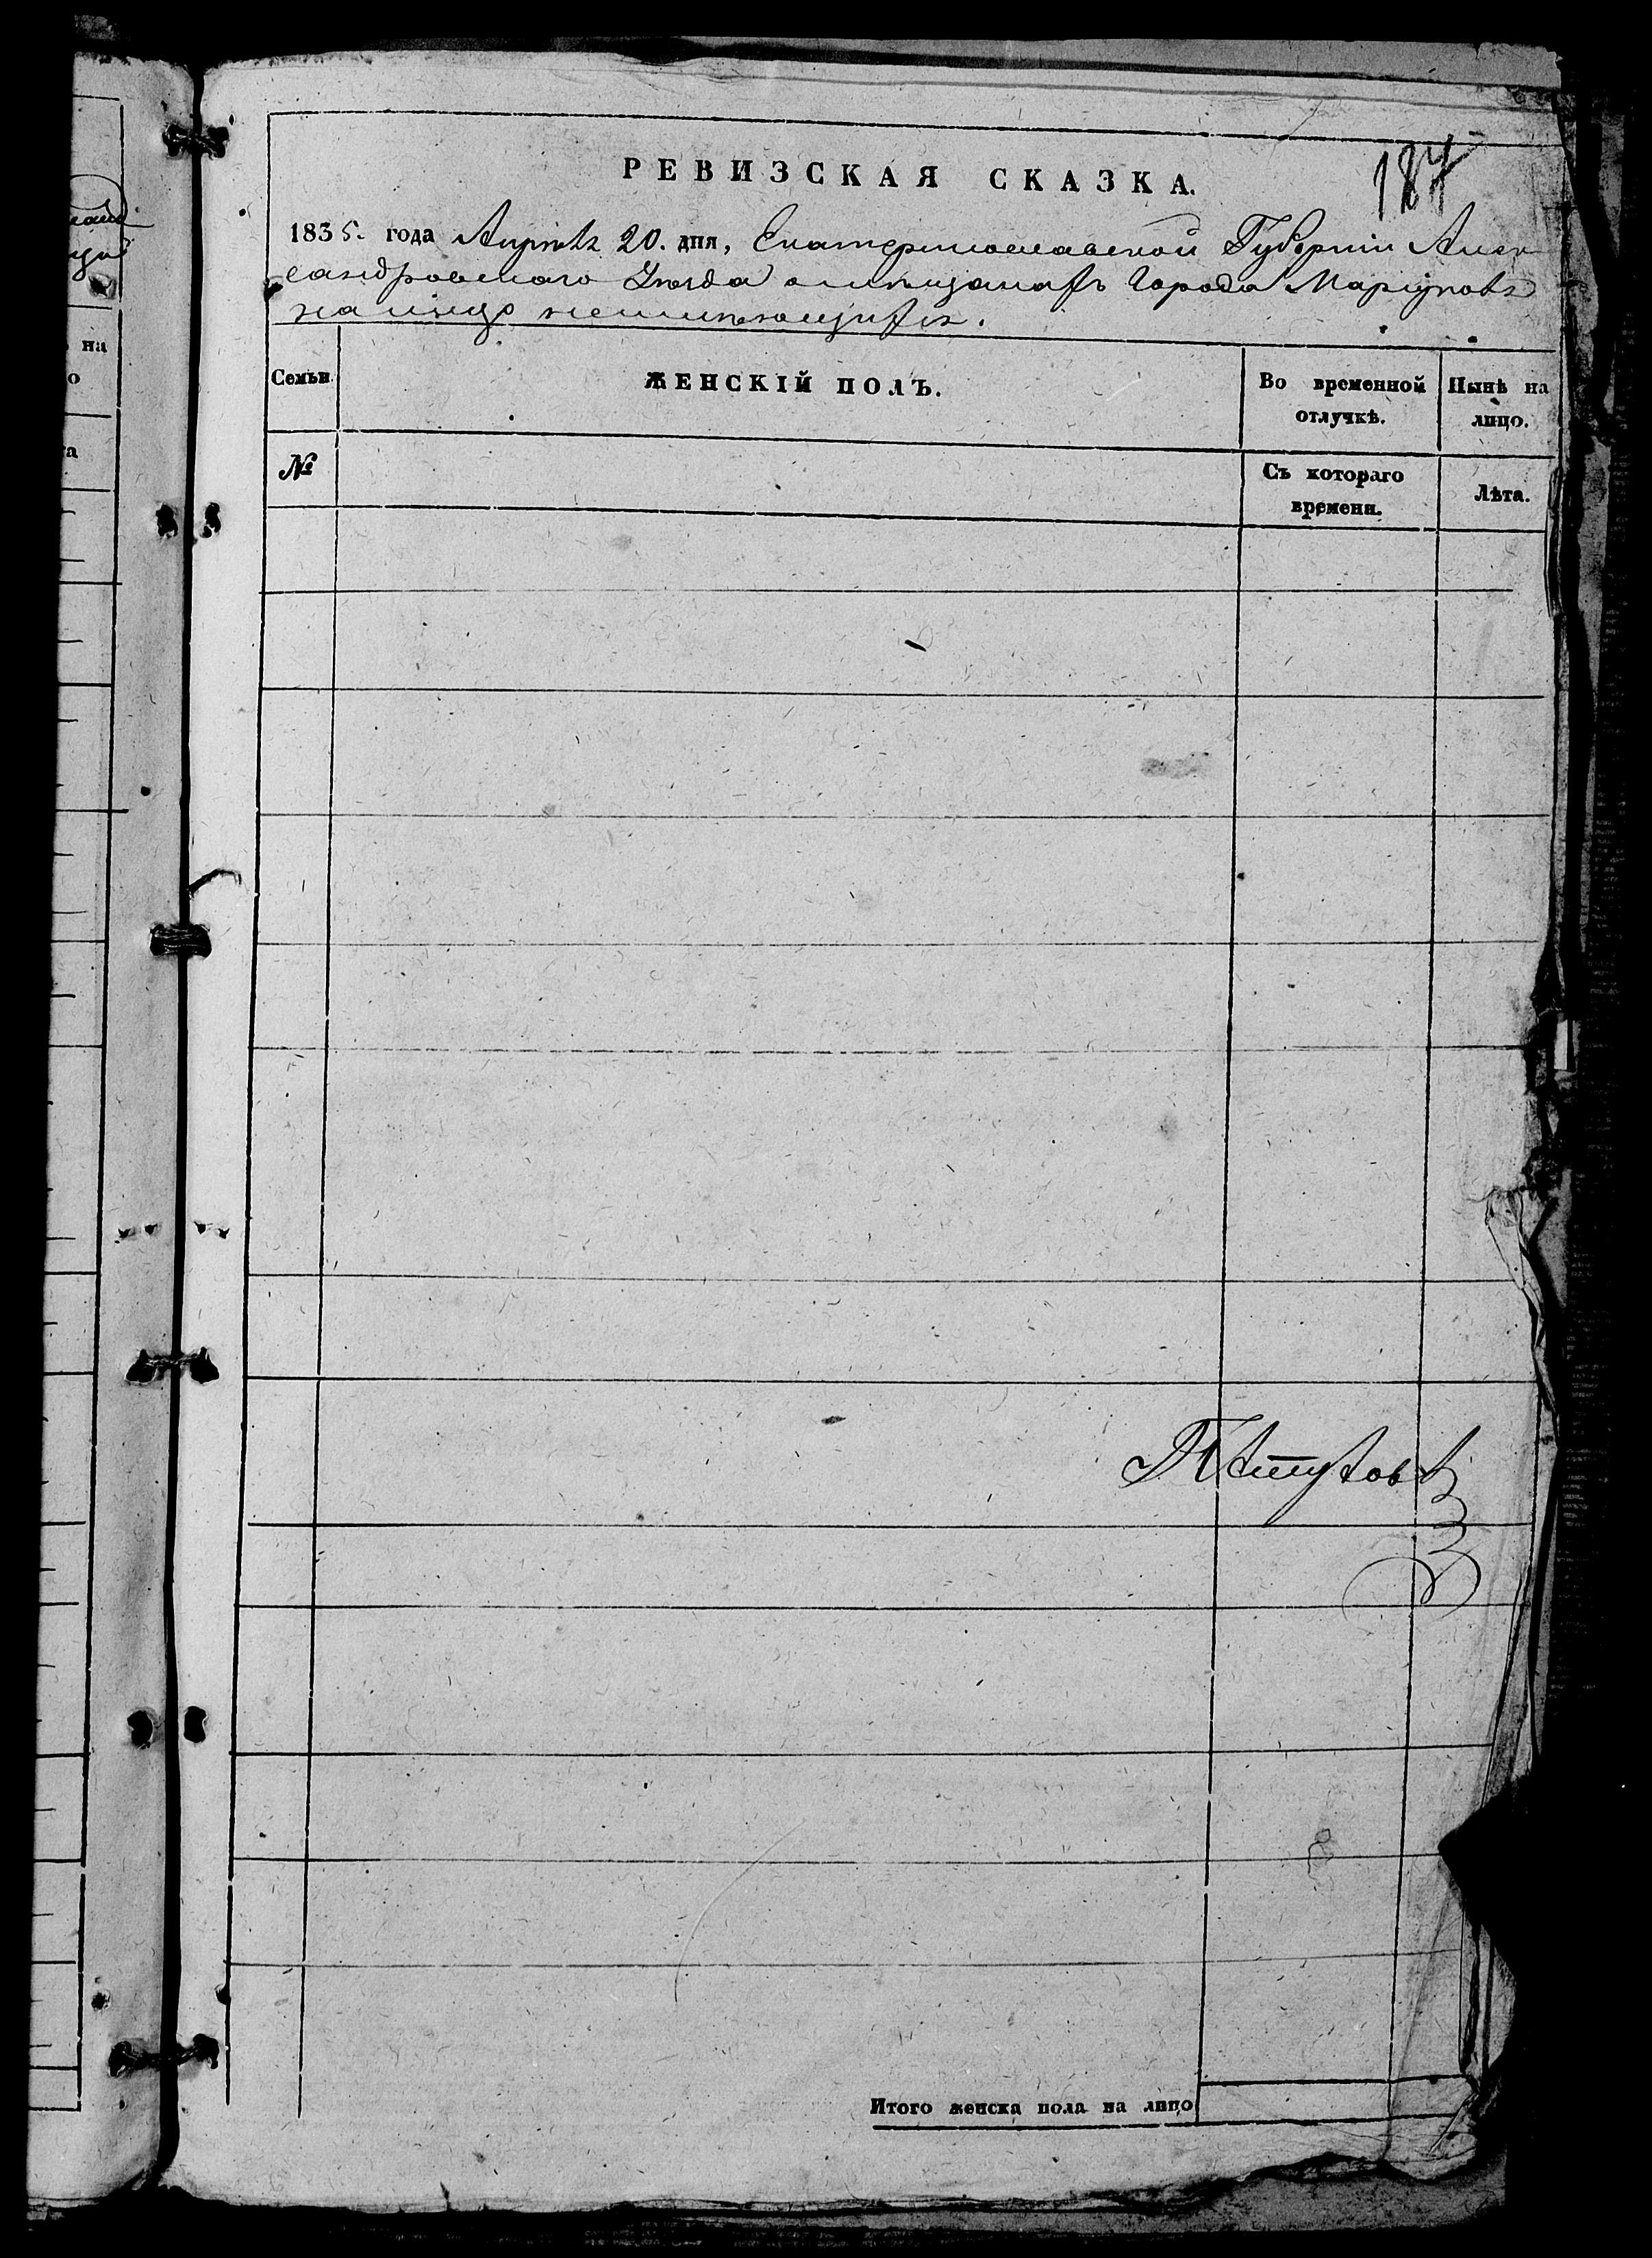 187
РЕВИЗСКАЯ СКАЗКА.
1835. года Апрѣля 20. дня, Екатеринославской Губерніи Алек
сандровскаго Уѣзда о мѣщанахъ города Маріуполя
на лицо неимѣющихся.
на
о
а
Семьи.
ЖЕНСКІЙ ПОЛЪ.
Во временной отлучкѣ.
Нынѣ на лицо.
№
Съ котораго времени.
Лѣта.
Итого женска пола на лицо